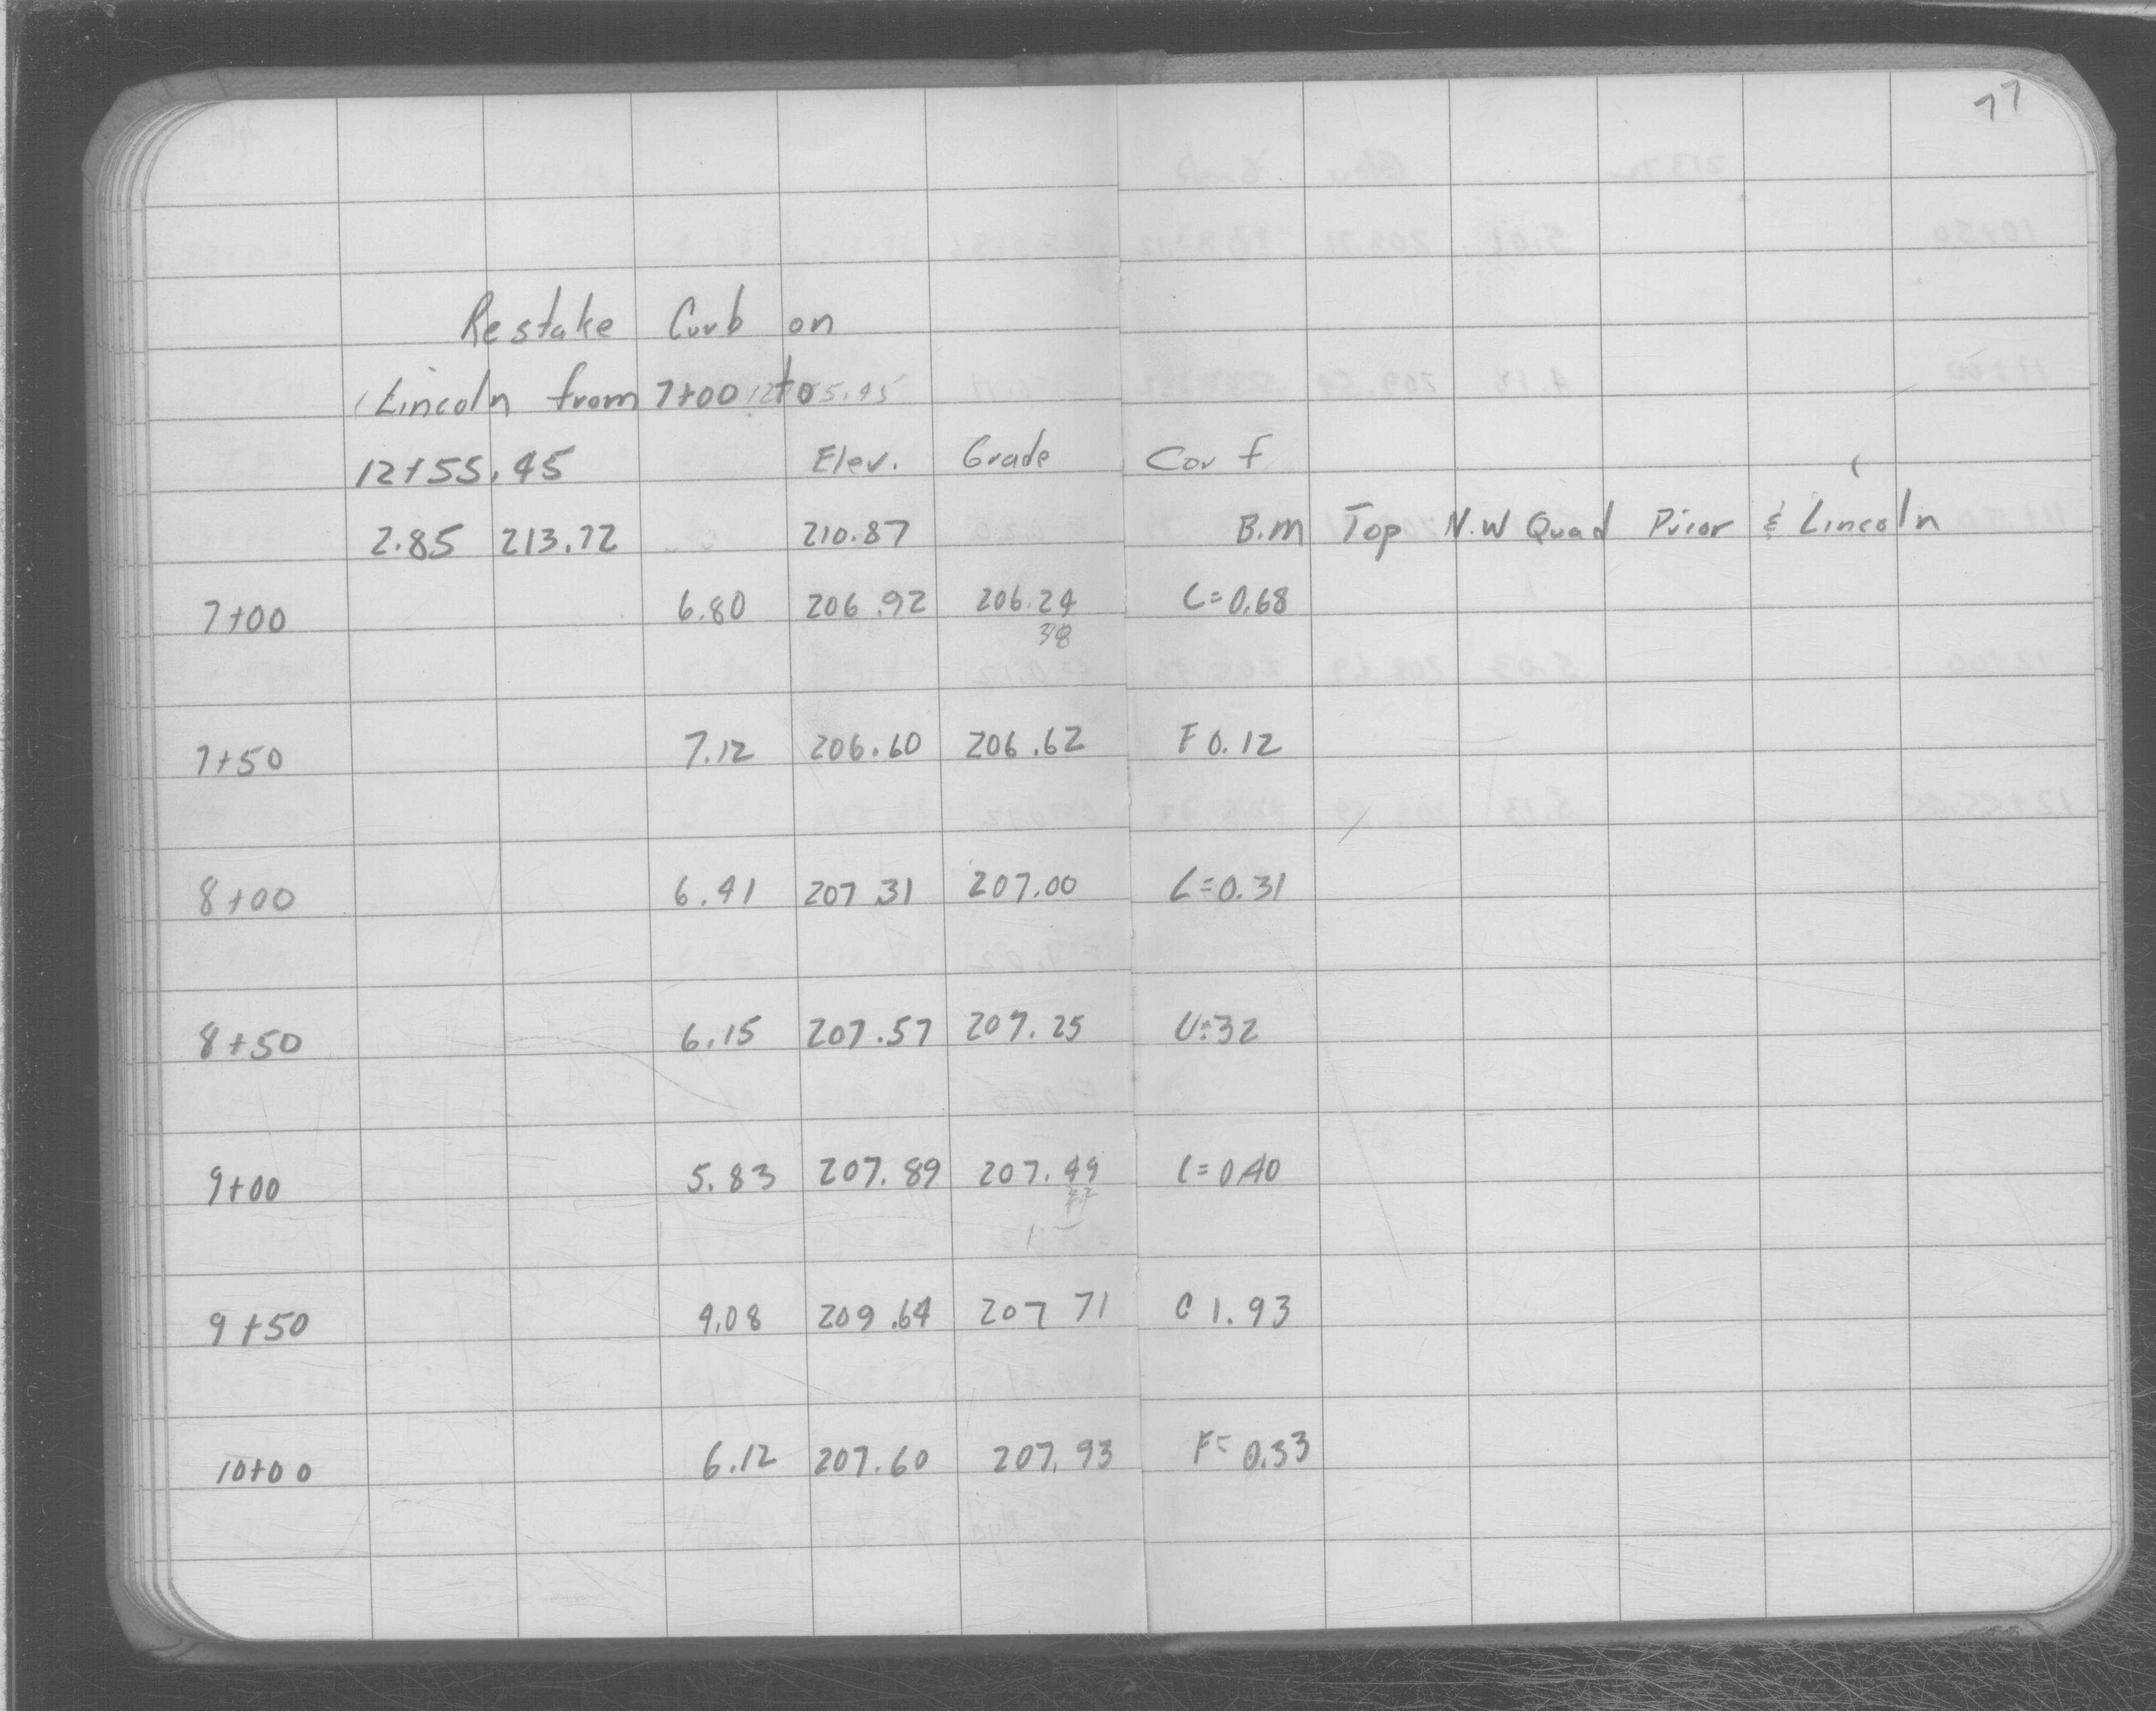 77
Restake Curb on
Lincoln from 7+00 to
12+55.45 Elev. Grade C or f
2.85 213.72 210.87 B.M Top N.W Quad Prior & Lincoln
7+00 6.80 206.92 206.24 C=0.68
38
7+50 7.12 206.60 206.62 F 0.12
8+00 6.41 207.31 207.00 C=0.31
8+50 6.15 207.57 207.25 C=.32
9+00 5.83 207.89 207.49 C=0.40
9+50 4.08 209.64 207 71 C 1.93
10+00 6.12 207.60 207.93 F= 0.33